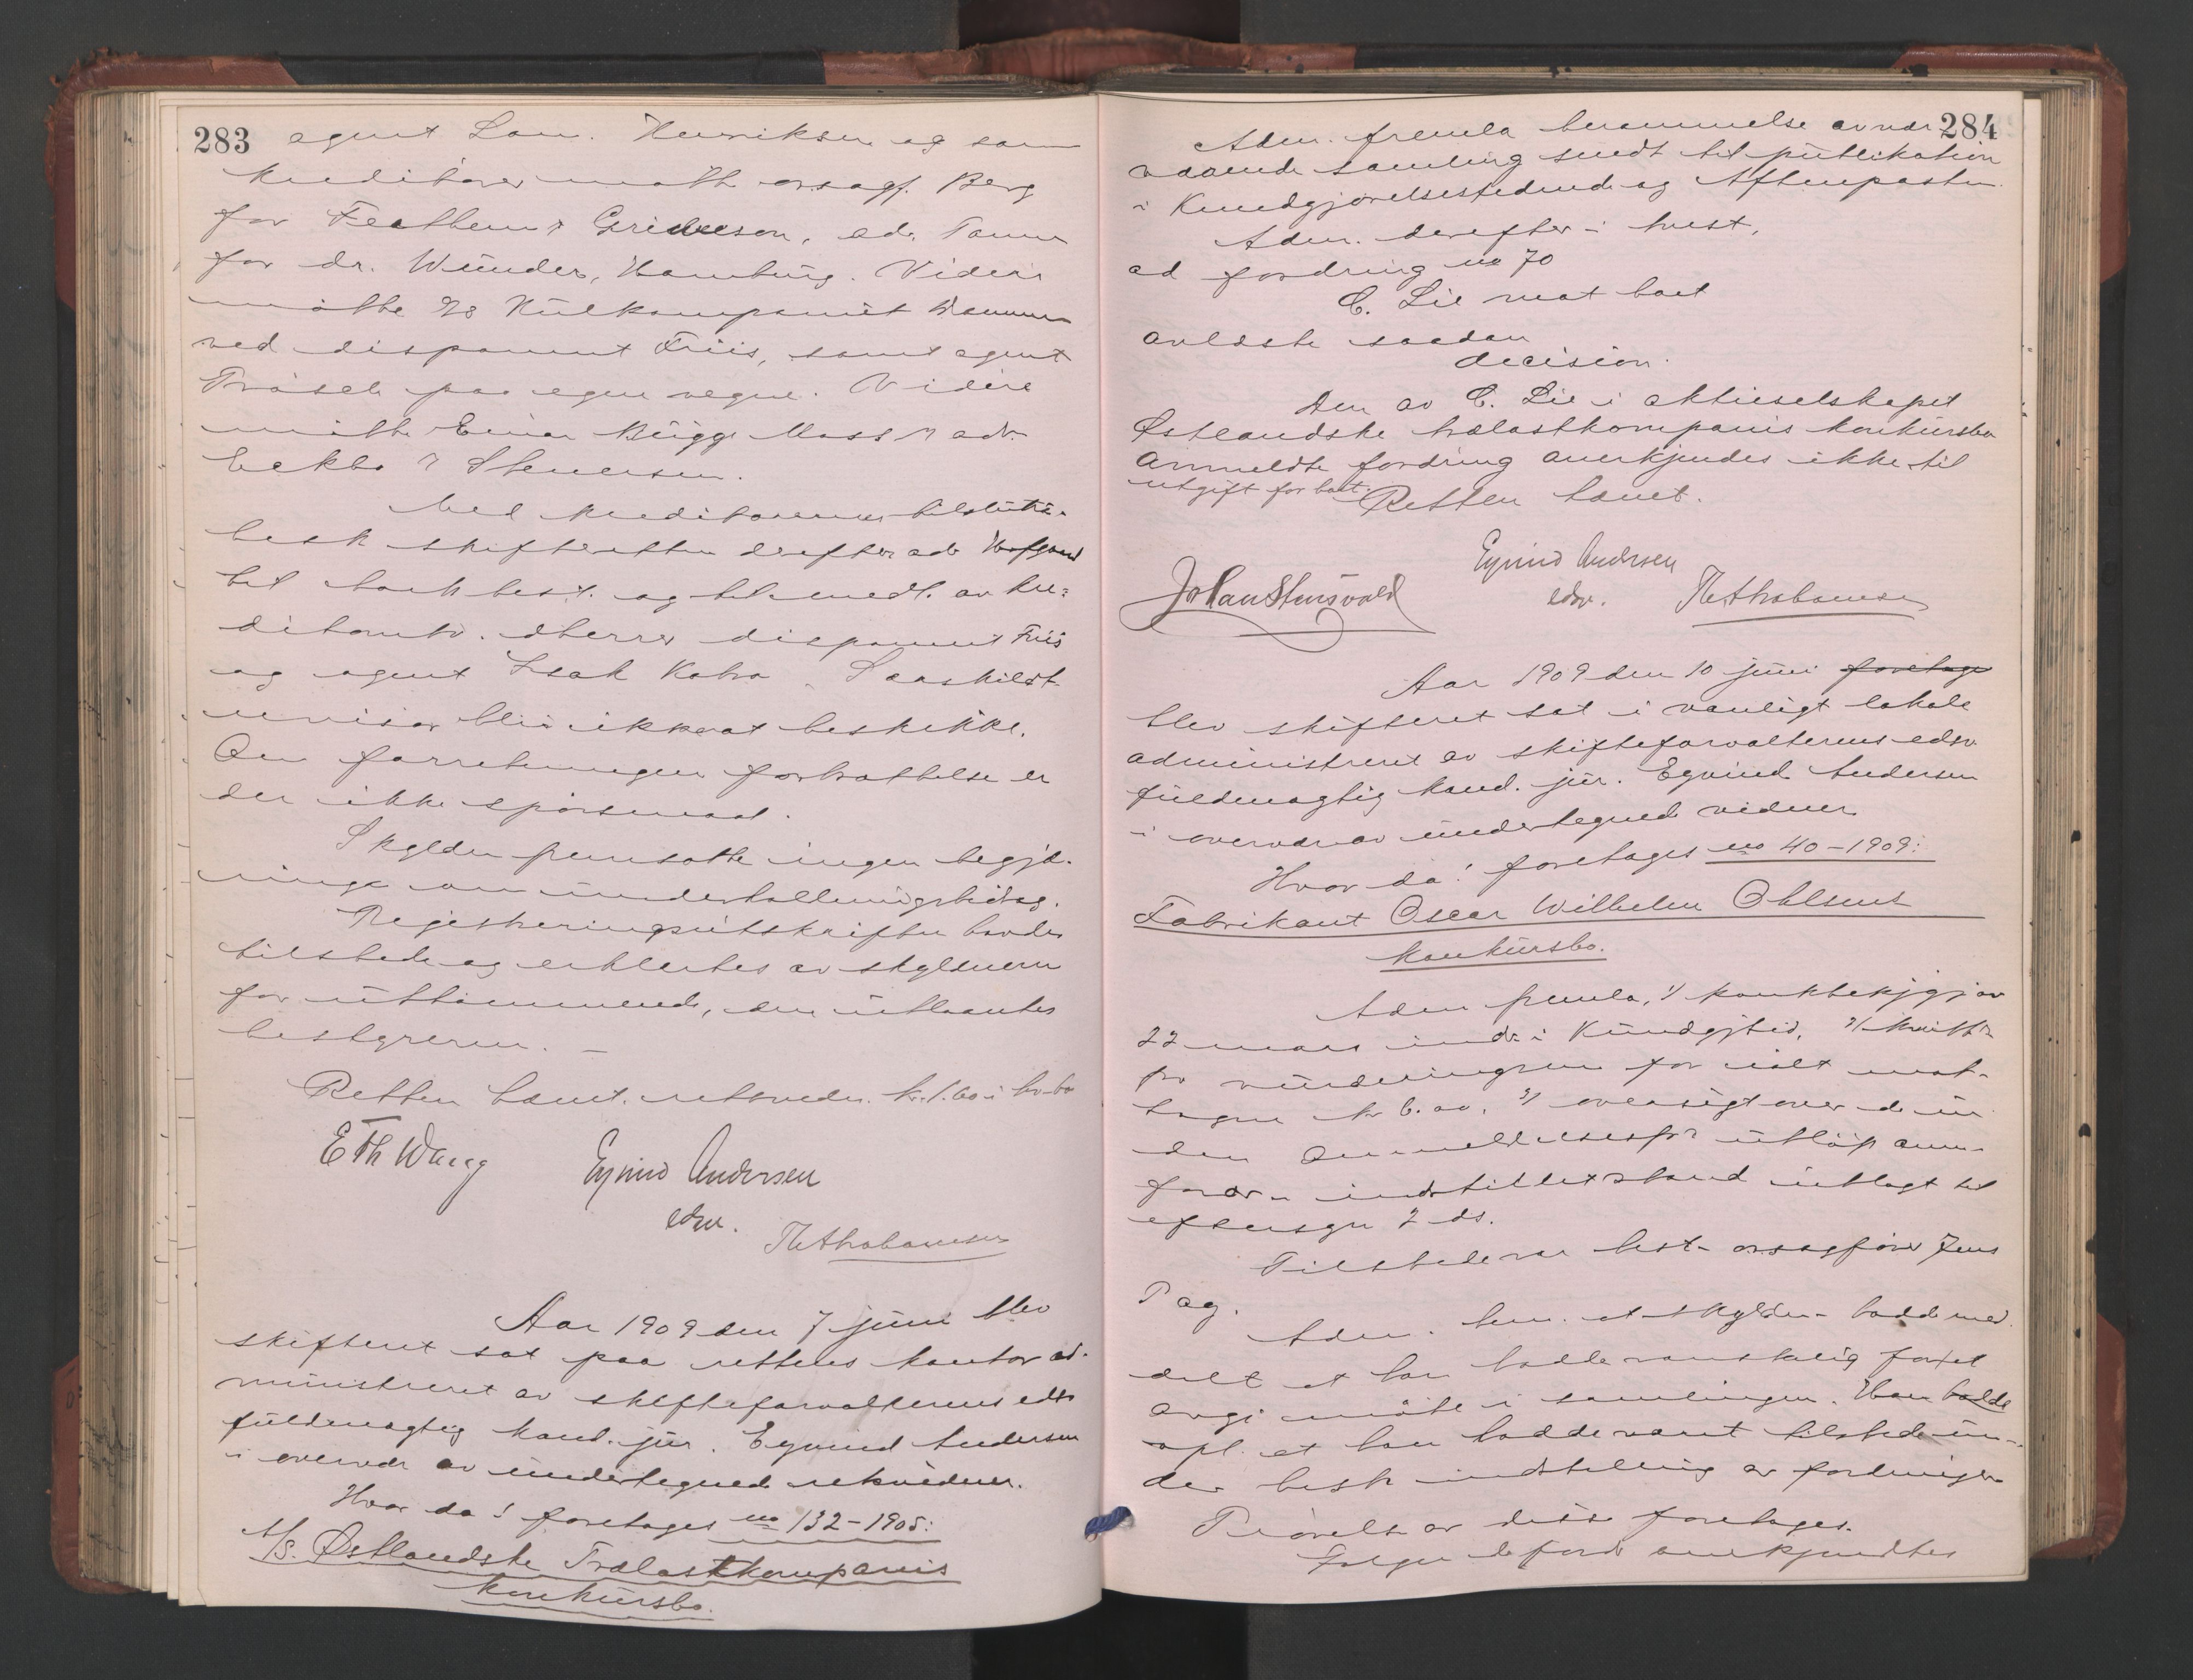 283
agent Lou. Henriksen og som
kreditorer møtte o.r.sagf. Berg
for Feathem & Grideeson, adv. Tanum
for dr. Wünder, Hamburg. Videre
møtte A/S Kulkompaniet Dammen
ved disponent Friis, samt agent
Trøseth paa egne vegne. Videre
møtte Einar Bügge Mass & adv.
Eckbo & Stenersen.
Med kreditorernes tilslutn.
besk skifteretten derefter adv Hofgaard
til bobest. og til medl. av kre-
ditorutv. dherrer disponent Friis
og agent Isak Kobro. Saaskildt
revisor blir ikke at beskikke.
Om forretningens fortsættelse er
der ikke spørsmaal.
Skylden fremsatte ingen begjæ-
ringe om underholdningsbidrag.
Registreringsutskriften havdes
tilstede og erklærtes av skyldneren
for uttømmende, den utlaantes
bestyreren. –
Retten hævet. retsvidn. kr. 1.60 i bo-bo
E Th Wang
Eyvind Andersen
edsv.
Th Abrahamsen
Aar 1909 den 7 juni blev
skifteret sat paa rettens kontor ad-
ministreret av skifteforvalterens edsv
fuldmægtig kand. jur. Eyvind Andersen
i overvær av undertegnede retsvidner.
Hvor da! foretages no 132-1905:
A/S. Østlandske Trælastkompanis
konkursbo.
284
Adm. fremla berammelse av nær-
værende samling sendt til publikation
i Kundgjørelsestidende og Aftenposten.
Adm. derefter i hvest,
ad fordring no 70
C. Lie mot boet
avldste saadan
decision.
Den av C. Lie i aktieselskapet
Østlandske trælastkompanis konkursbo
anmeldte fordring anerkjendes ikke til
utgift for boet.
Retten hævet.
Johan Stensvold
Eyvind Andersen
edsv.
Th Abrahamsen
Aar 1909 den 10 juni foretage
blev skifteret sat i vanligt lokale
administreret av skifteforvalterens edsv.
fuldmægtig kand. jur. Eyvind Andersen
i overvær av undertegnede vidner.
Hvor da! foretages no 40-1909:
Fabrikant Oscar Wilhelm Ohlsens
konkursbo.
Adm fremla, 1/ konkbekjgjør
22 mars indr i Kundgjtid, 2/ kvitt
fr vurderingsm for rølt mot-
tagne kr 6.00, 3/ oversigt over de in
den anmeldelsesfr utløp anm.
fordr. indstillet stand utlagt til
eftersyn 2 ds.
Tilstede var best. o.r.sagfører Jens
Pag.
Adm. bem. at skyldn. hadde med-
delt at han hadde vanskelig for at
avgi møte i samlingen. Han hadde
opl. at han hadde været tilstede un-
der best indstilling av fordringen
Prøvelse av disse foretages.
Følgende fordr anerkjendtes